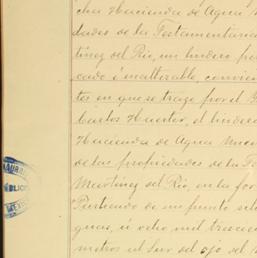 cha Hacienda de Agua
dades de la Testamentaría
tínez del Rio, un lindero
cado é inalterable, convi
tes en que se trazo por el
Carlos Huerter, el lindero
Hacienda de Agua Nueva
de las propiedades de la
Martínez del Rio, en la for
Partiendo de un punto
guas, ú ocho mil
metros al Sur del ojo del